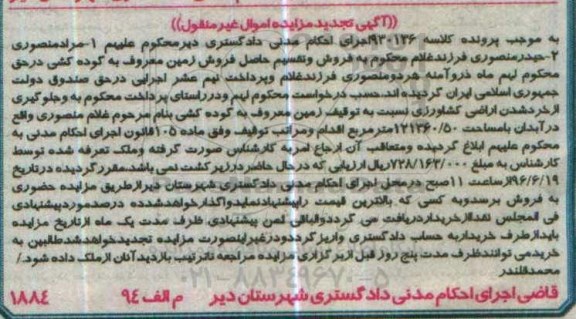 ((آگهی تجدید مزایده اموال غیر منقول))
به موجب پرونده کلاسه ۹۳۰۱۳۶اجرای احکام مدنی دادگستری دیرمحکوم علیهم ۱-مرادمنصوری
۲-حیدرمنصوری فرزندغلام محکوم به فروش وتقسیم حاصل فروش زمین معروف به گوده کشی درحق
محکوم لهم ماه ذروآمنه هردومنصوری فرزندغلام وپرداخت نیم عشر اجرایی درحق صندوق دولت
جمهوری اسلامی ایران گردیده اند.حسب درخواست محکوم لهم ودرراستای پرداخت محکوم به وجلوگیری
ازخردشدن اراضی کشاورزی نسبت به توقیف زمین معروف به گوده کشی بنام مرحوم غلام منصوری واقع
درآبدان بامساحت ۱۲۱۳۶۰/۵۰مترمربع اقدام ومراتب توقیف وفق ماده ۱۰۵قانون اجرای احکام مدنی به
محکوم علیهم ابلاغ گردیده ومتعاقب آن ارجاع امربه کارشناس صورت گرفته وملک تعرفه شده توسط
کارشناس به مبلغ ۷۲۸/۱۶۳/۰۰۰ریال ارزیابی که درحال حاضردرزیرکشت نمی باشد.مقررگردیده درتاریخ
۹۶/۶/۱۹ازساعت ۱۱صبح درمحل اجرای احکام مدنی دادگستری شهرستان دیرازطریق مزایده حضوری
به فروش برسدوبه کسی که بالاترین قیمت راپیشنهادنمایدواگذارخواهدشدده درصدموردپیشنهادی
فی المجلس نقداازخریداردریافت می گرددوالباقی ثمن پیشنهادی ظرف مدت یک ماه ازتاریخ مزایده
بایدازطرف خریداربه حساب دادگستری واریزگرددودرغیراینصورت مزایده تجدیدخواهدشدطالبین به
خریدمی توانندظرف مدت پنج روز قبل ازبرگزاری مزایده مراجعه تاترتیب بازدیدآنان ازملک داده شود./
محمدقلندر
قاضی اجرای احکام مدنی دادگستری شهرستان دیر م الف ۹۴ ۱۸۸۴
۰۲۱-۸۸۳۴۹۶۷۰-۵